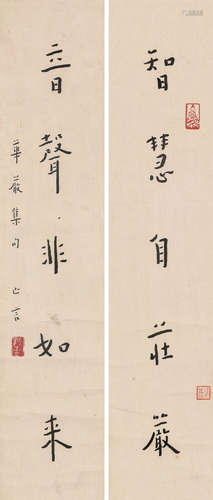 智慧自莊嚴
音聲非如來
華嚴集句 亡言